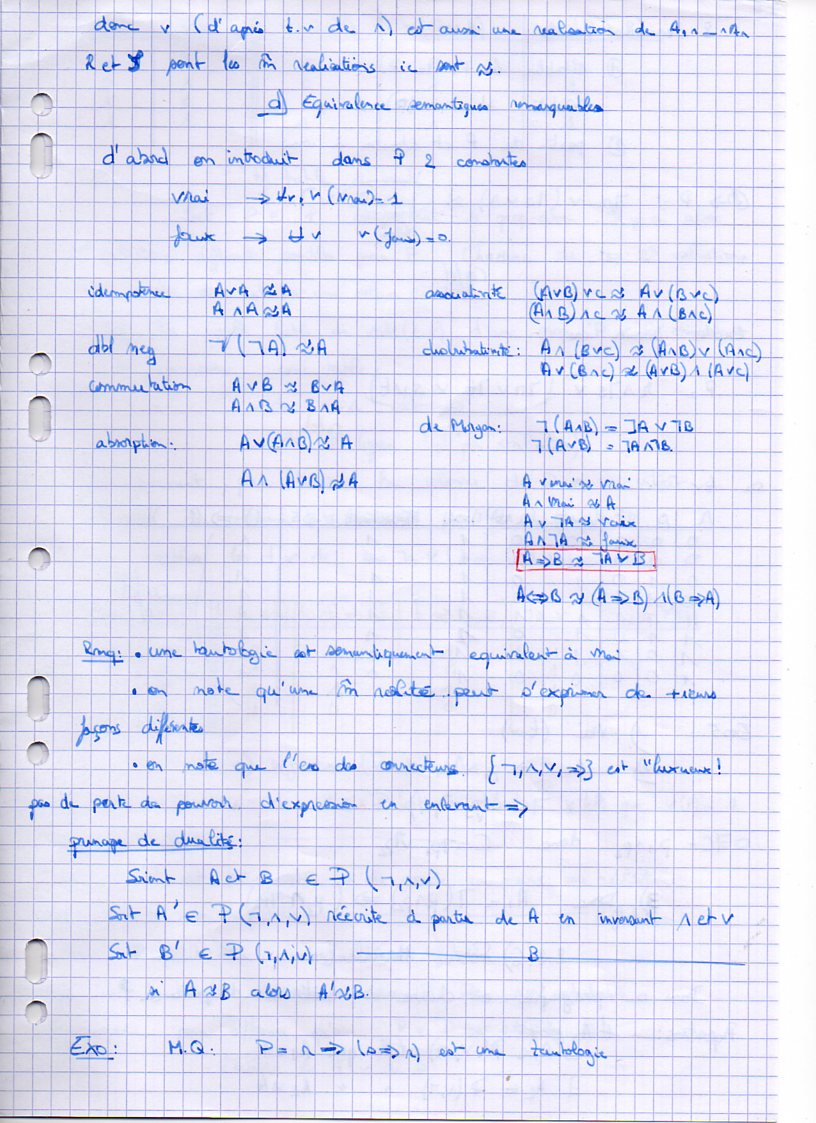 donc v (d'après t.v de ∧) est aussi une realisation de A₁∧...∧An
R et S ont les m̂ realisations ie sont ≈.
d) Equivalence semantiques remarquables
d'abord on introduit dans P 2 constantes
vrai → ∀v, v(vrai)=1
faux → ∀v v(faux)=0.
idempotence A∨A ≈ A
A∧A ≈ A
associativité (A∨B)∨C ≈ A∨(B∨C)
(A∧B)∧C ≈ A∧(B∧C)
dbl neg ¬(¬A) ≈ A
distributivité: A∧(B∨C) ≈ (A∧B)∨(A∧C)
A∨(B∧C) ≈ (A∨B)∧(A∨C)
commutation A∨B ≈ B∨A
A∧B ≈ B∧A
de Morgan: ¬(A∧B) = ¬A∨¬B
¬(A∨B) = ¬A∧¬B.
absorption: A∨(A∧B) ≈ A
A∧(A∨B) ≈ A
A∨vrai ≈ vrai
A∧vrai ≈ A
A∨¬A ≈ vrai
A∧¬A ≈ faux
A⇒B ≈ ¬A∨B
A⇔B ≈ (A⇒B)∧(B⇒A)
Rmq: • une tautologie est semantiquement equivalent à vrai
• on note qu'une m̂ réalité peut s'exprimer de +ieurs
façons differentes
• on note que l'ens des connecteurs {¬,∧,∨,⇒} est "luxueux!
pas de perte du pouvoir d'expression en enlevant ⇒
principe de dualité:
Soient A et B ∈ P(¬,∧,∨)
Soit A' ∈ P(¬,∧,∨) réécrite à partir de A en inversant ∧ et ∨
Soit B' ∈ P(¬,∧,∨) ——— B ———
si A≈B alors A'≈B.
Exo: M.Q: P = r ⇒ (s⇒r) est une tautologie